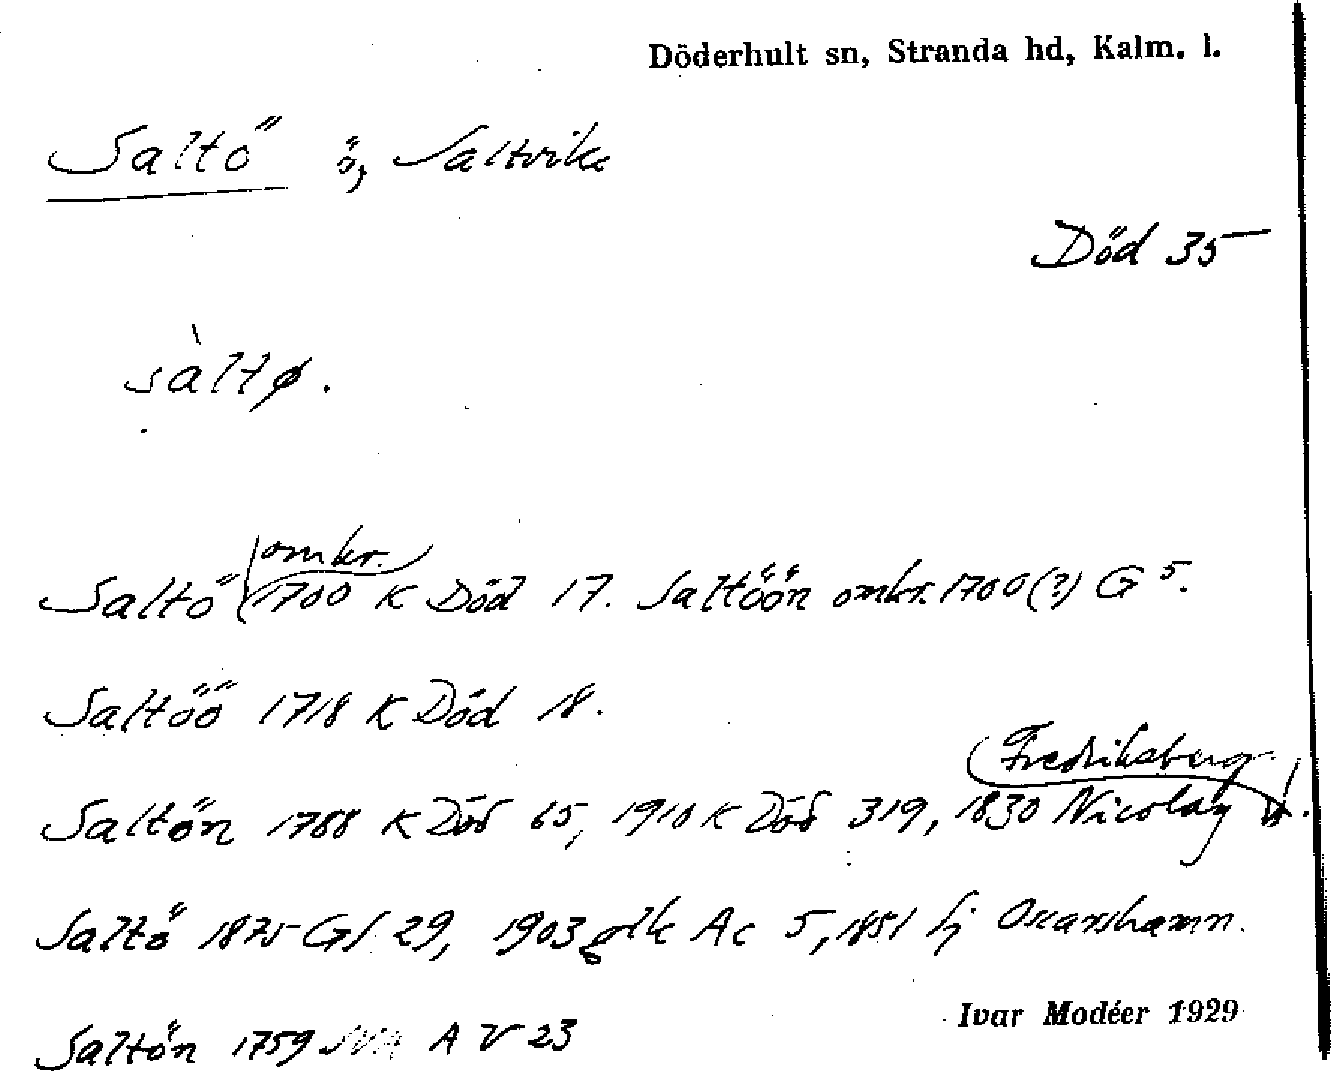 Döderhult sn, Stranda hd, Kalm. l.
Saltö ö, Saltvik
Död 35
sàltø.
Saltö omkr. 1700 K Död 17. Saltöön omkr. 1700 (?) G 5.
Saltöö 1718 K Död 18.
Saltön 1788 K Död 65, 1910 K Död 319, 1830 Nicolay Fredriksberg
Saltö 1875 Gf 29, 1903 glk Ac 5, 1851 Sj Oscarshamn.
Ivar Modéer 1929
Saltön 1759 A V 23